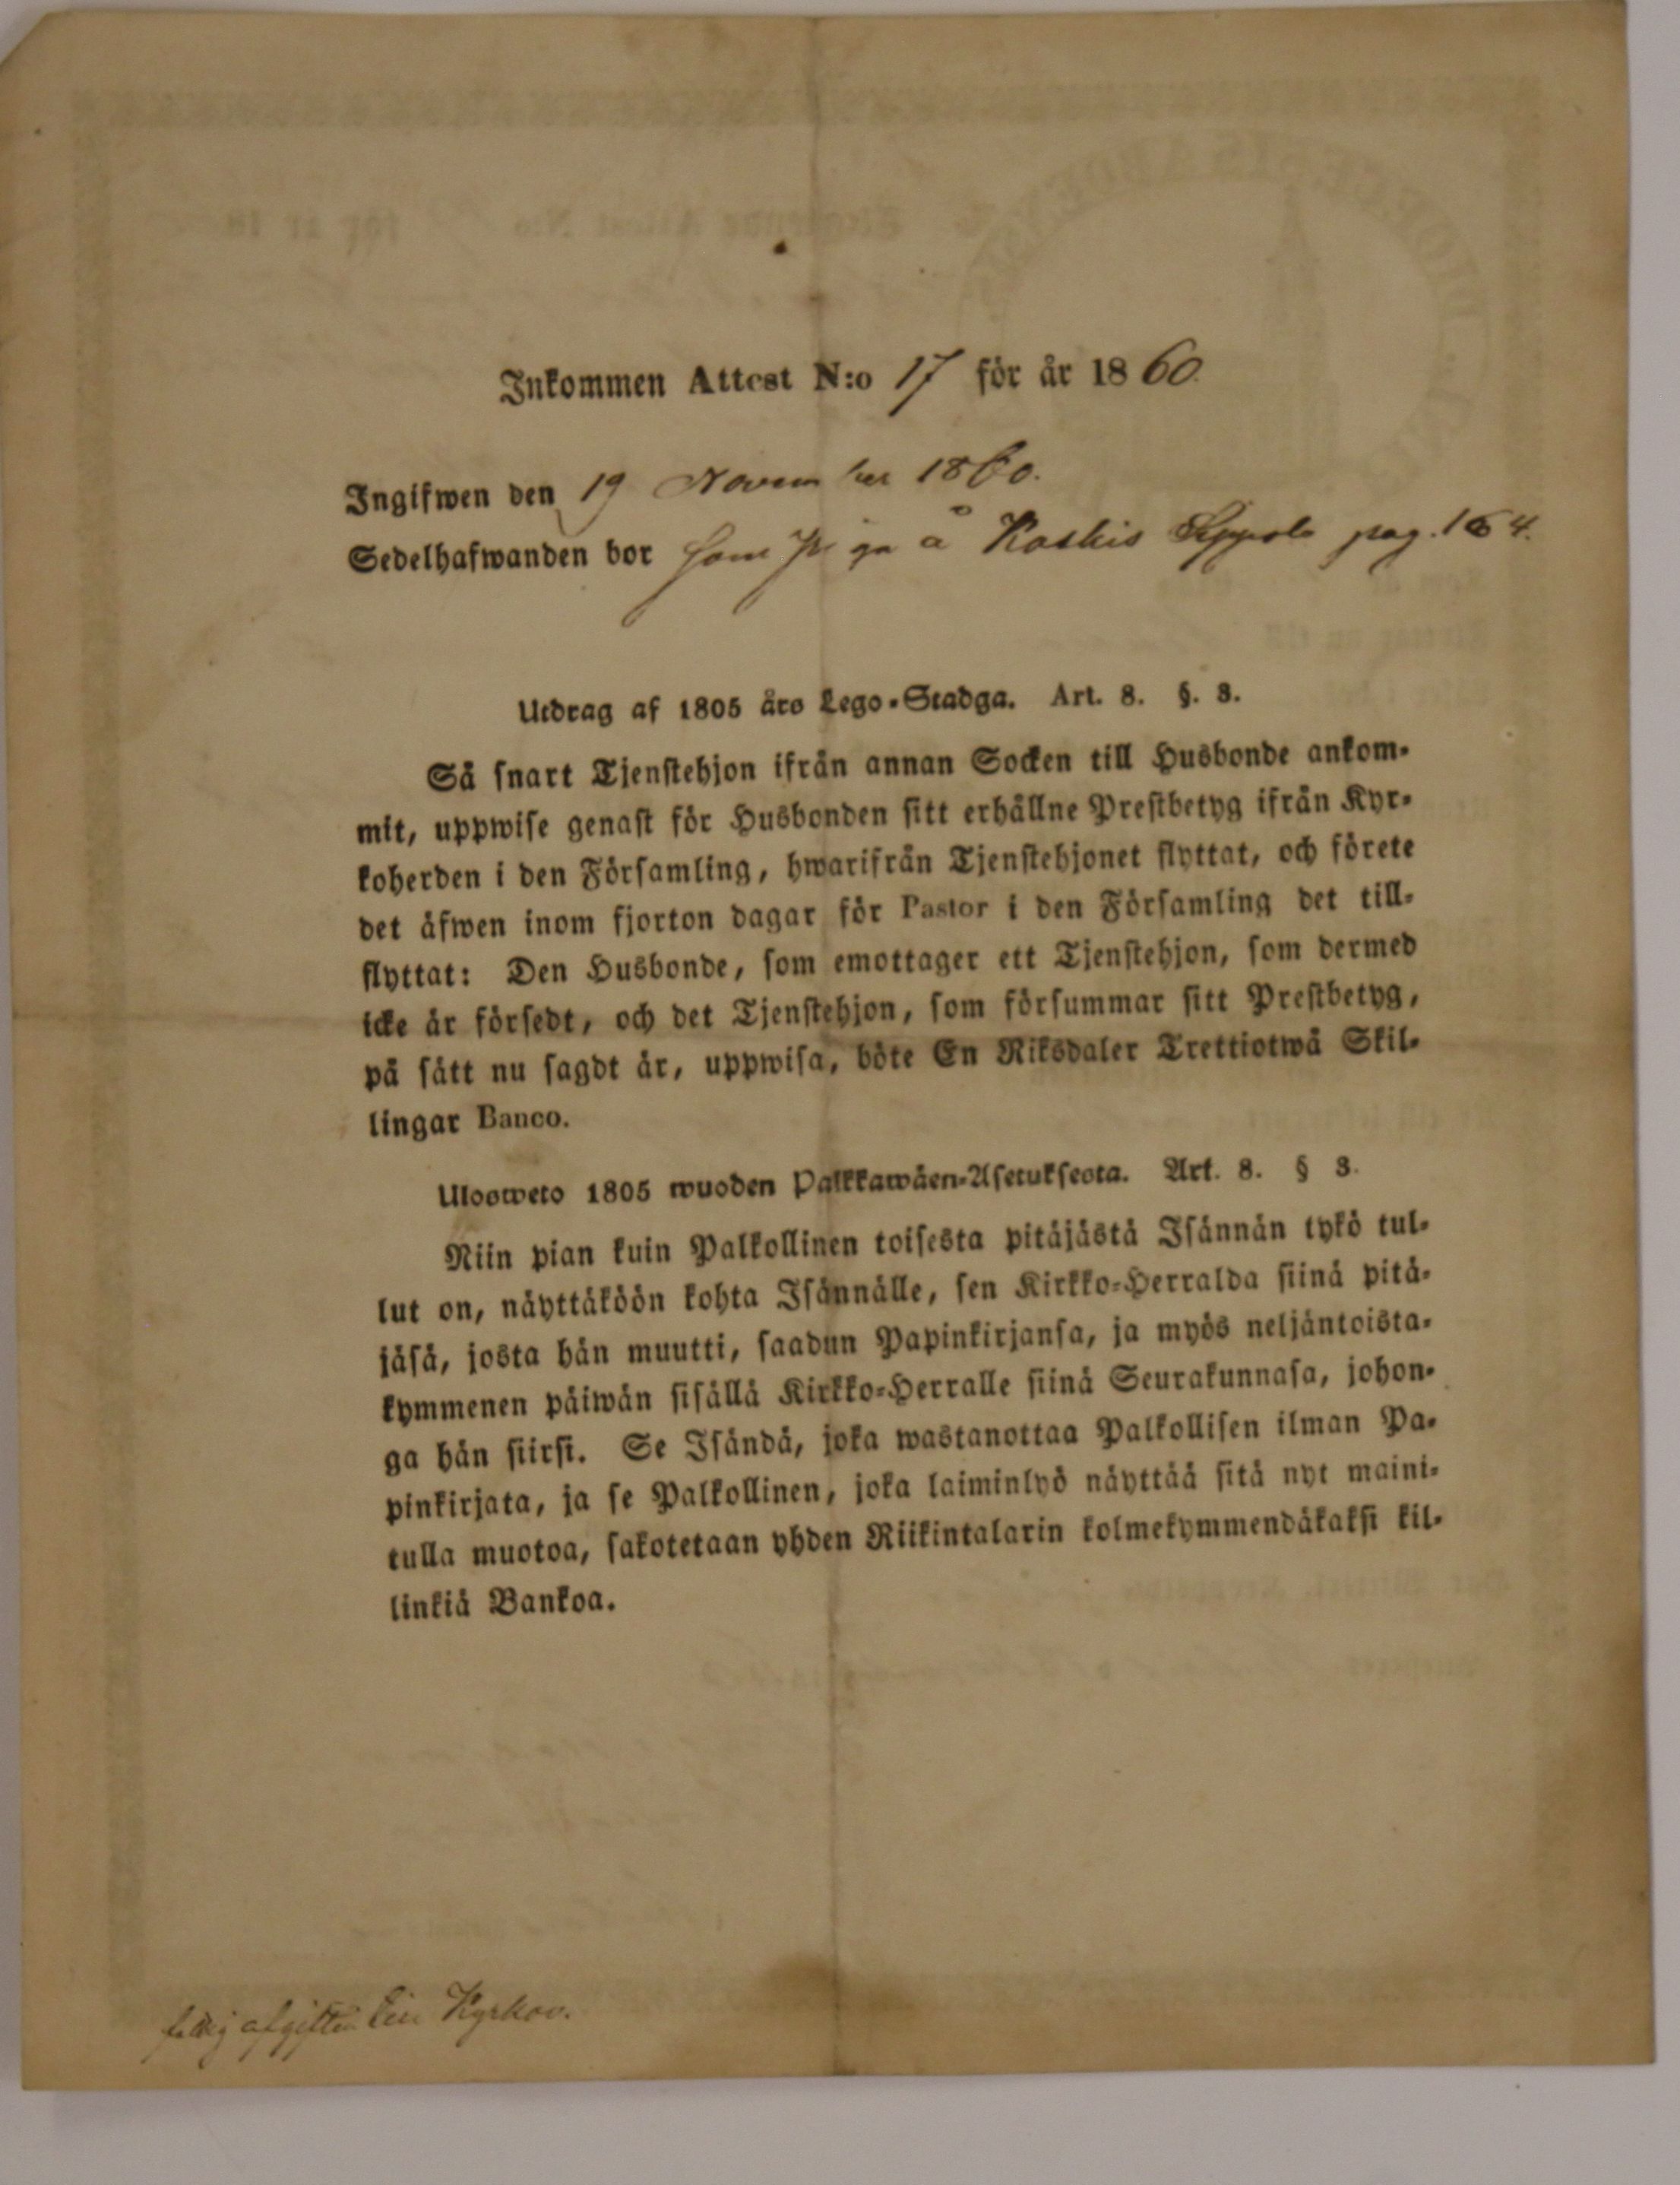 Inkommen Attest N:o 17 för år 1860
Ingifwen den 19 November 1860.
Sedelhafwanden bor som Piga å Koskis Seppälä pag. 164.
Utdrag af 1805 års Lego-Stadga. Art. 8. §. 3.
Så snart Tjenstehjon ifrån annan Socken till Husbonde ankom-
mit, uppwise genast för Husbonden sitt erhållne Prestbetyg ifrån Kyr-
koherden i den Församling, hwarifrån Tjenstehjonet flyttat, och förete
det äfwen inom fjorton dagar för Pastor i den Församling det till-
flyttat: Den Husbonde, som emottager ett Tjenstehjon, som dermed
icke är försedt, och det Tjenstehjon, som försummar sitt Prestbetyg,
på sätt nu sagdt är, uppwisa, böte En Riksdaler Trettiotwå Skil-
lingar Banco.
Ulosweto 1805 wuoden Palkkawäen-Asetuksesta. Art. 8. § 3.
Niin pian kuin Palkollinen toisesta pitäjästä Isännän tykö tul-
lut on, näyttäköön kohta Isännälle, sen Kirkko-Herralda siinä pitä-
jäsä, josta hän muutti, saadun Papinkirjansa, ja myös neljäntoista-
kymmenen päiwän sisällä Kirkko-Herralle siinä Seurakunnasa, johon-
ga hän siirsi. Se Isändä, joka wastanottaa Palkollisen ilman Pa-
pinkirjata, ja se Palkollinen, joka laiminlyö näyttää sitä nyt maini-
tulla muotoa, sakotetaan yhden Riikintalarin kolmekymmendäkaksi kil-
linkiä Bankoa.
afgiften till Kyrkov.